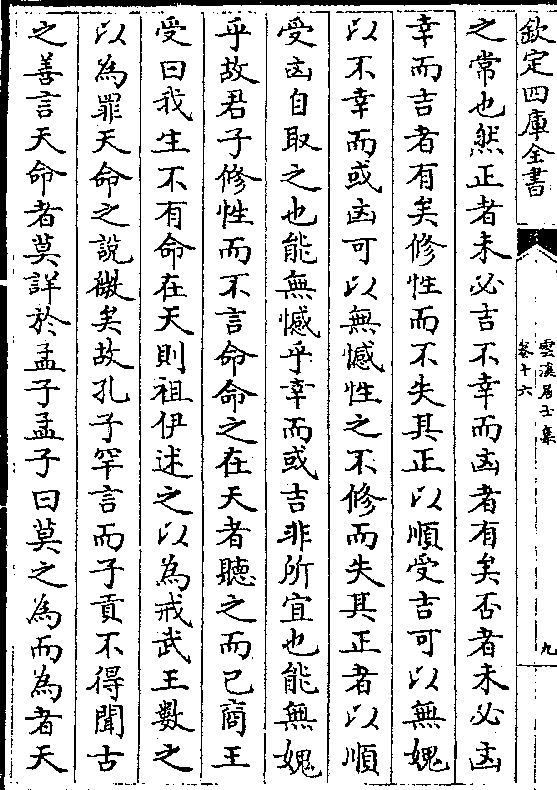 欽定四庫全書
雲溪居士集
卷十六
九
之常也然正者未必吉不幸而凶者有矣否者未必凶
幸而吉者有矣修性而不失其正以順受吉可以無媿
以不幸而或凶可以無憾性之不修而失其正者以順
受凶自取之也能無憾乎幸而或吉非所宜也能無媿
乎故君子修性而不言命命之在天者聽之而已商王
受曰我生不有命在天則祖伊述之以為戒武王數之
以為罪天命之說微矣故孔子罕言而子貢不得聞古
之善言天命者莫詳於孟子孟子曰莫之為而為者天